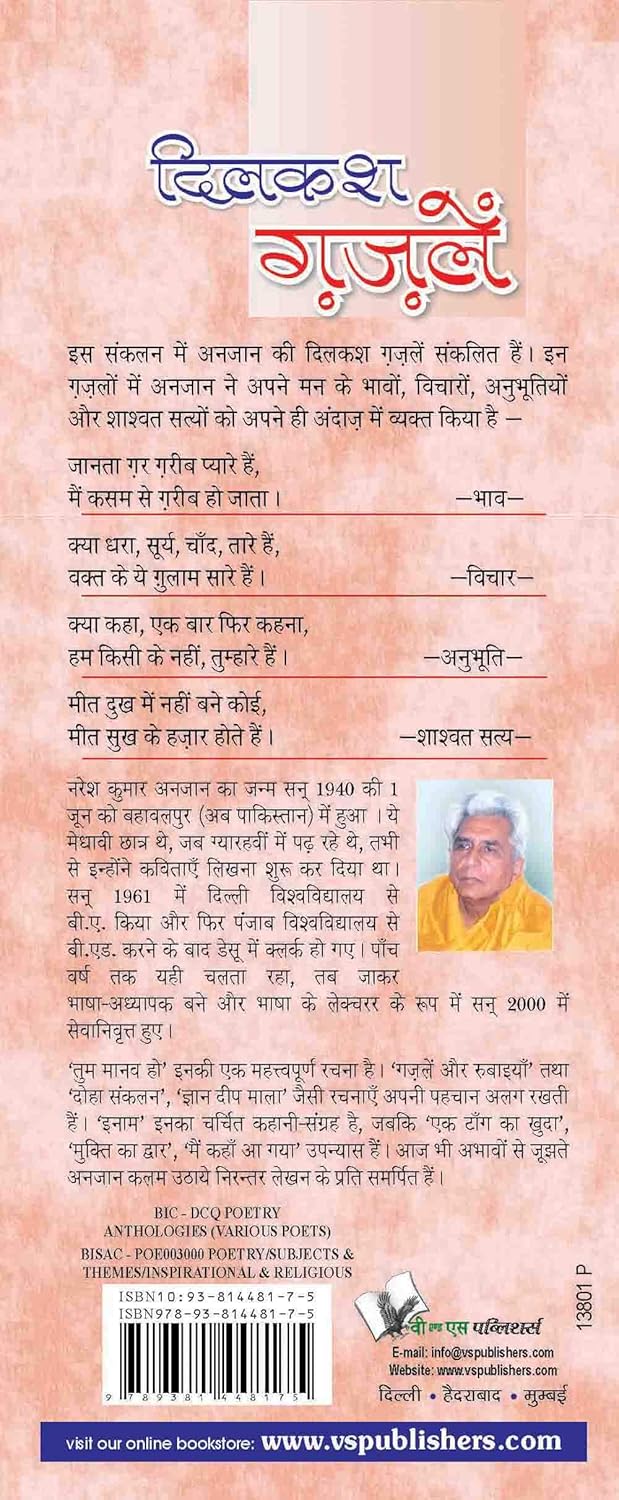 दिलकश
ग़ज़लें
इस संकलन में अनजान की दिलकश ग़ज़लें संकलित हैं। इन
ग़ज़लों में अनजान ने अपने मन के भावों, विचारों, अनुभूतियों
और शाश्वत सत्यों को अपने ही अंदाज़ में व्यक्त किया है –
जानता ग़र ग़रीब प्यारे हैं,
मैं कसम से ग़रीब हो जाता। –भाव–
क्या धरा, सूर्य, चाँद, तारे हैं,
वक्त के ये गुलाम सारे हैं। –विचार–
क्या कहा, एक बार फिर कहना,
हम किसी के नहीं, तुम्हारे हैं। –अनुभूति–
मीत दुख में नहीं बने कोई,
मीत सुख के हज़ार होते हैं। –शाश्वत सत्य–
नरेश कुमार अनजान का जन्म सन् 1940 की 1
जून को बहावलपुर (अब पाकिस्तान) में हुआ । ये
मेधावी छात्र थे, जब ग्यारहवीं में पढ़ रहे थे, तभी
से इन्होंने कविताएँ लिखना शुरू कर दिया था।
सन् 1961 में दिल्ली विश्वविद्यालय से
बी.ए. किया और फिर पंजाब विश्वविद्यालय से
बी.एड. करने के बाद डेसू में क्लर्क हो गए। पाँच
वर्ष तक यही चलता रहा, तब जाकर
भाषा-अध्यापक बने और भाषा के लेक्चरर के रूप में सन् 2000 में
सेवानिवृत्त हुए।
‘तुम मानव हो’ इनकी एक महत्त्वपूर्ण रचना है। ‘गज़लें और रुबाइयाँ’ तथा
‘दोहा संकलन’, ‘ज्ञान दीप माला’ जैसी रचनाएँ अपनी पहचान अलग रखती
हैं। ‘इनाम’ इनका चर्चित कहानी-संग्रह है, जबकि ‘एक टाँग का खुदा’,
‘मुक्ति का द्वार’, ‘मैं कहाँ आ गया’ उपन्यास हैं। आज भी अभावों से जूझते
अनजान कलम उठाये निरन्तर लेखन के प्रति समर्पित हैं।
BIC - DCQ POETRY
ANTHOLOGIES (VARIOUS POETS)
BISAC - POE003000 POETRY/SUBJECTS &
THEMES/INSPIRATIONAL & RELIGIOUS
ISBN10:93-814481-7-5
ISBN978-93-814481-7-5
9 789381 448175
वी एण्ड एस पब्लिशर्स
E-mail: info@vspublishers.com
Website: www.vspublishers.com
दिल्ली • हैदराबाद • मुम्बई
13801 P
visit our online bookstore: www.vspublishers.com